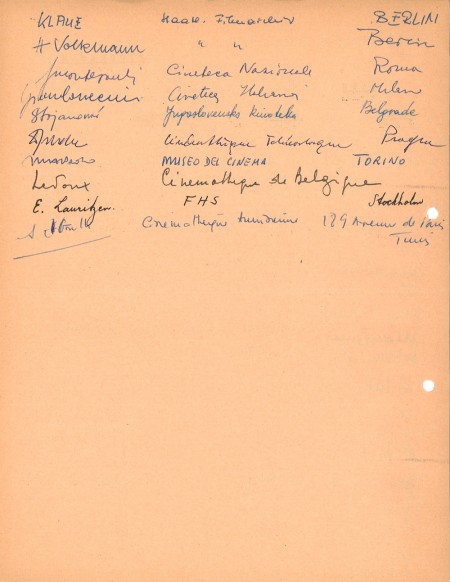 KLAUE Staatl. Filmarchiv BERLIN
H Volkmann " " Berlin
Cineteca Nazionale Roma
Cineteca Italiana Milano
Stojanović Jugoslovenska kinoteka Belgrade
Cinémathèque Prague
MUSEO DEL CINEMA TORINO
Ledoux Cinémathèque de Belgique
E. Lauritzen. FHS Stockholm
Cinematheque 129 Avenue de Paris
Tunis